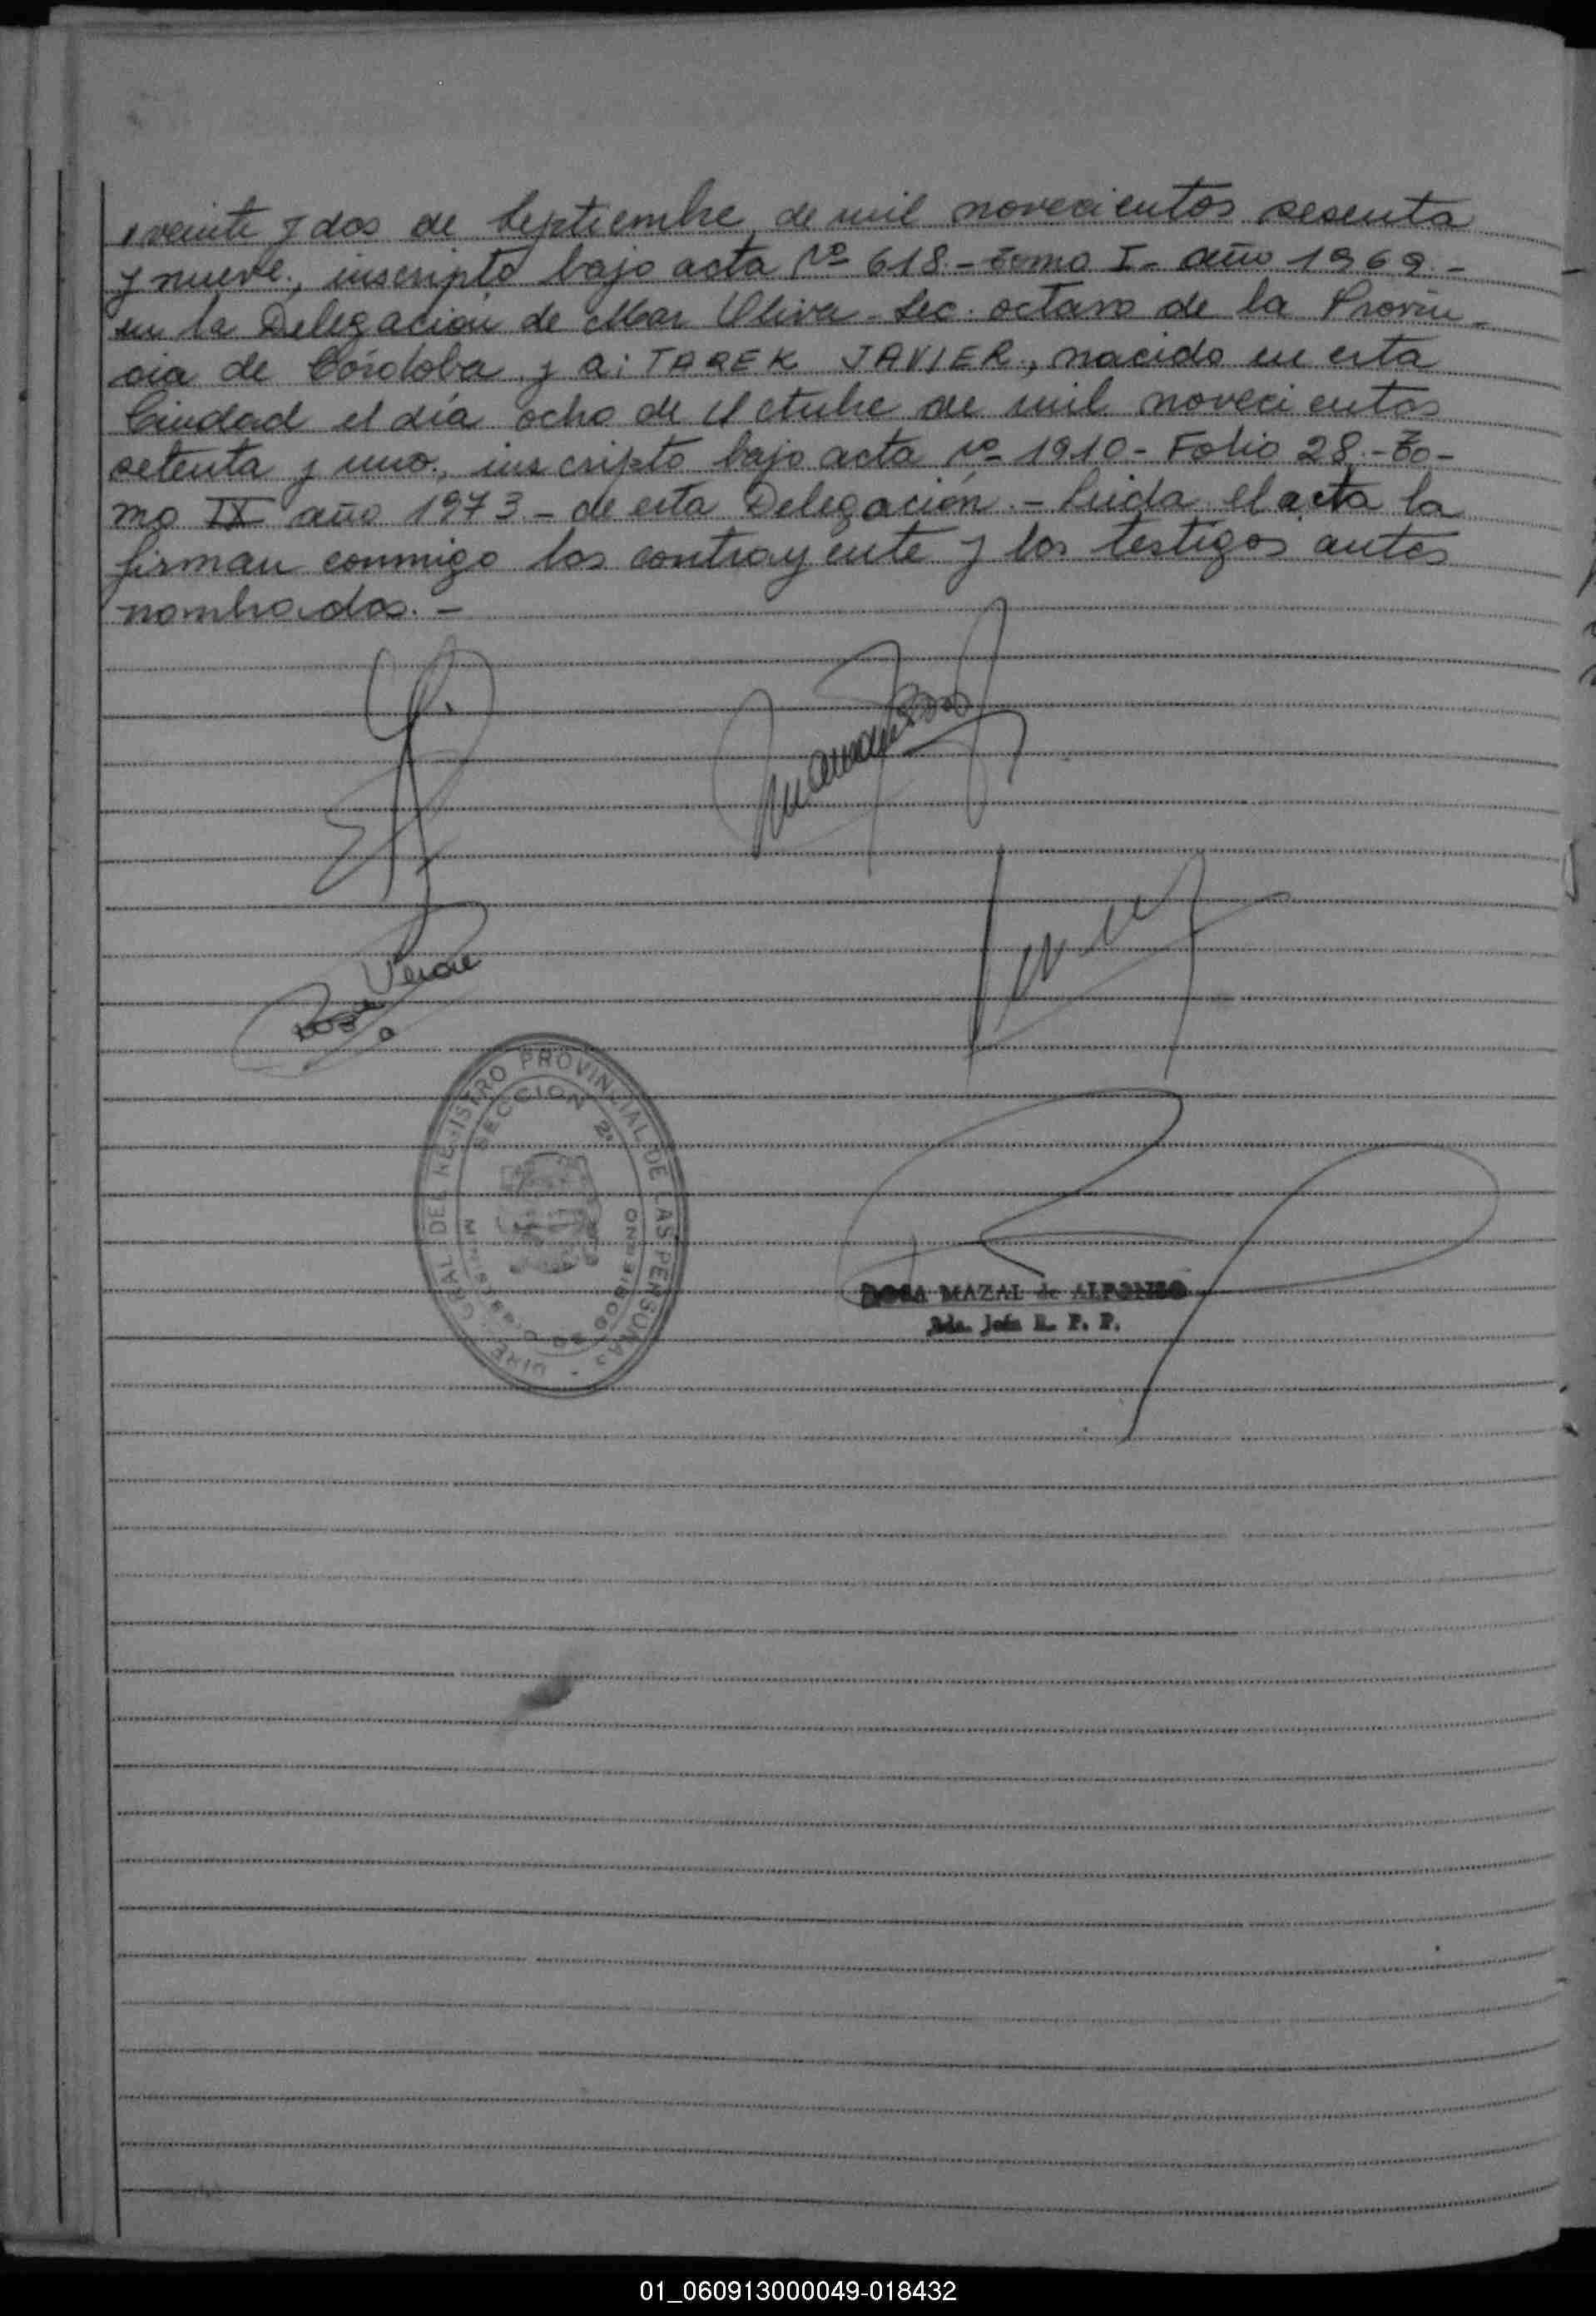 veinte y dos de Septiembre de mil novecientos sesenta
y nueve, inscripto bajo acta Nº 618 - Tomo I - año 1969 -
en la Delegación de Mar Oliva - Sec. octava de la Provin-
cia de Córdoba y a: TAREK JAVIER, nacido en esta
Ciudad el día ocho de Octubre de mil novecientos
setenta y uno, inscripto bajo acta Nº 1910 - Folio 28 - To-
mo IX año 1973 - de esta Delegación. - Leida el acta la
firman conmigo los contrayente y los testigos antes
nombrados. -
DEL REGISTRO PROVINCIAL DE LAS PERSONAS
SECCION 2ª
ROSA MAZAL de ALFONSO
R. P. P.
01_060913000049-018432